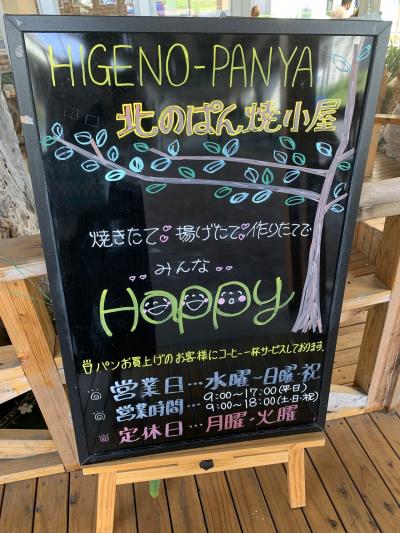 HIGENO-PANYA
北のぱん焼小屋
焼きたて 揚げたて 作りたてで
みんな
Happy
パンお買上げのお客様にコーヒー一杯サービスしております。
営業日…水曜~日曜・祝
営業時間…9:00~17:00(平日)
9:00~18:00(土・日・祝)
定休日…月曜・火曜